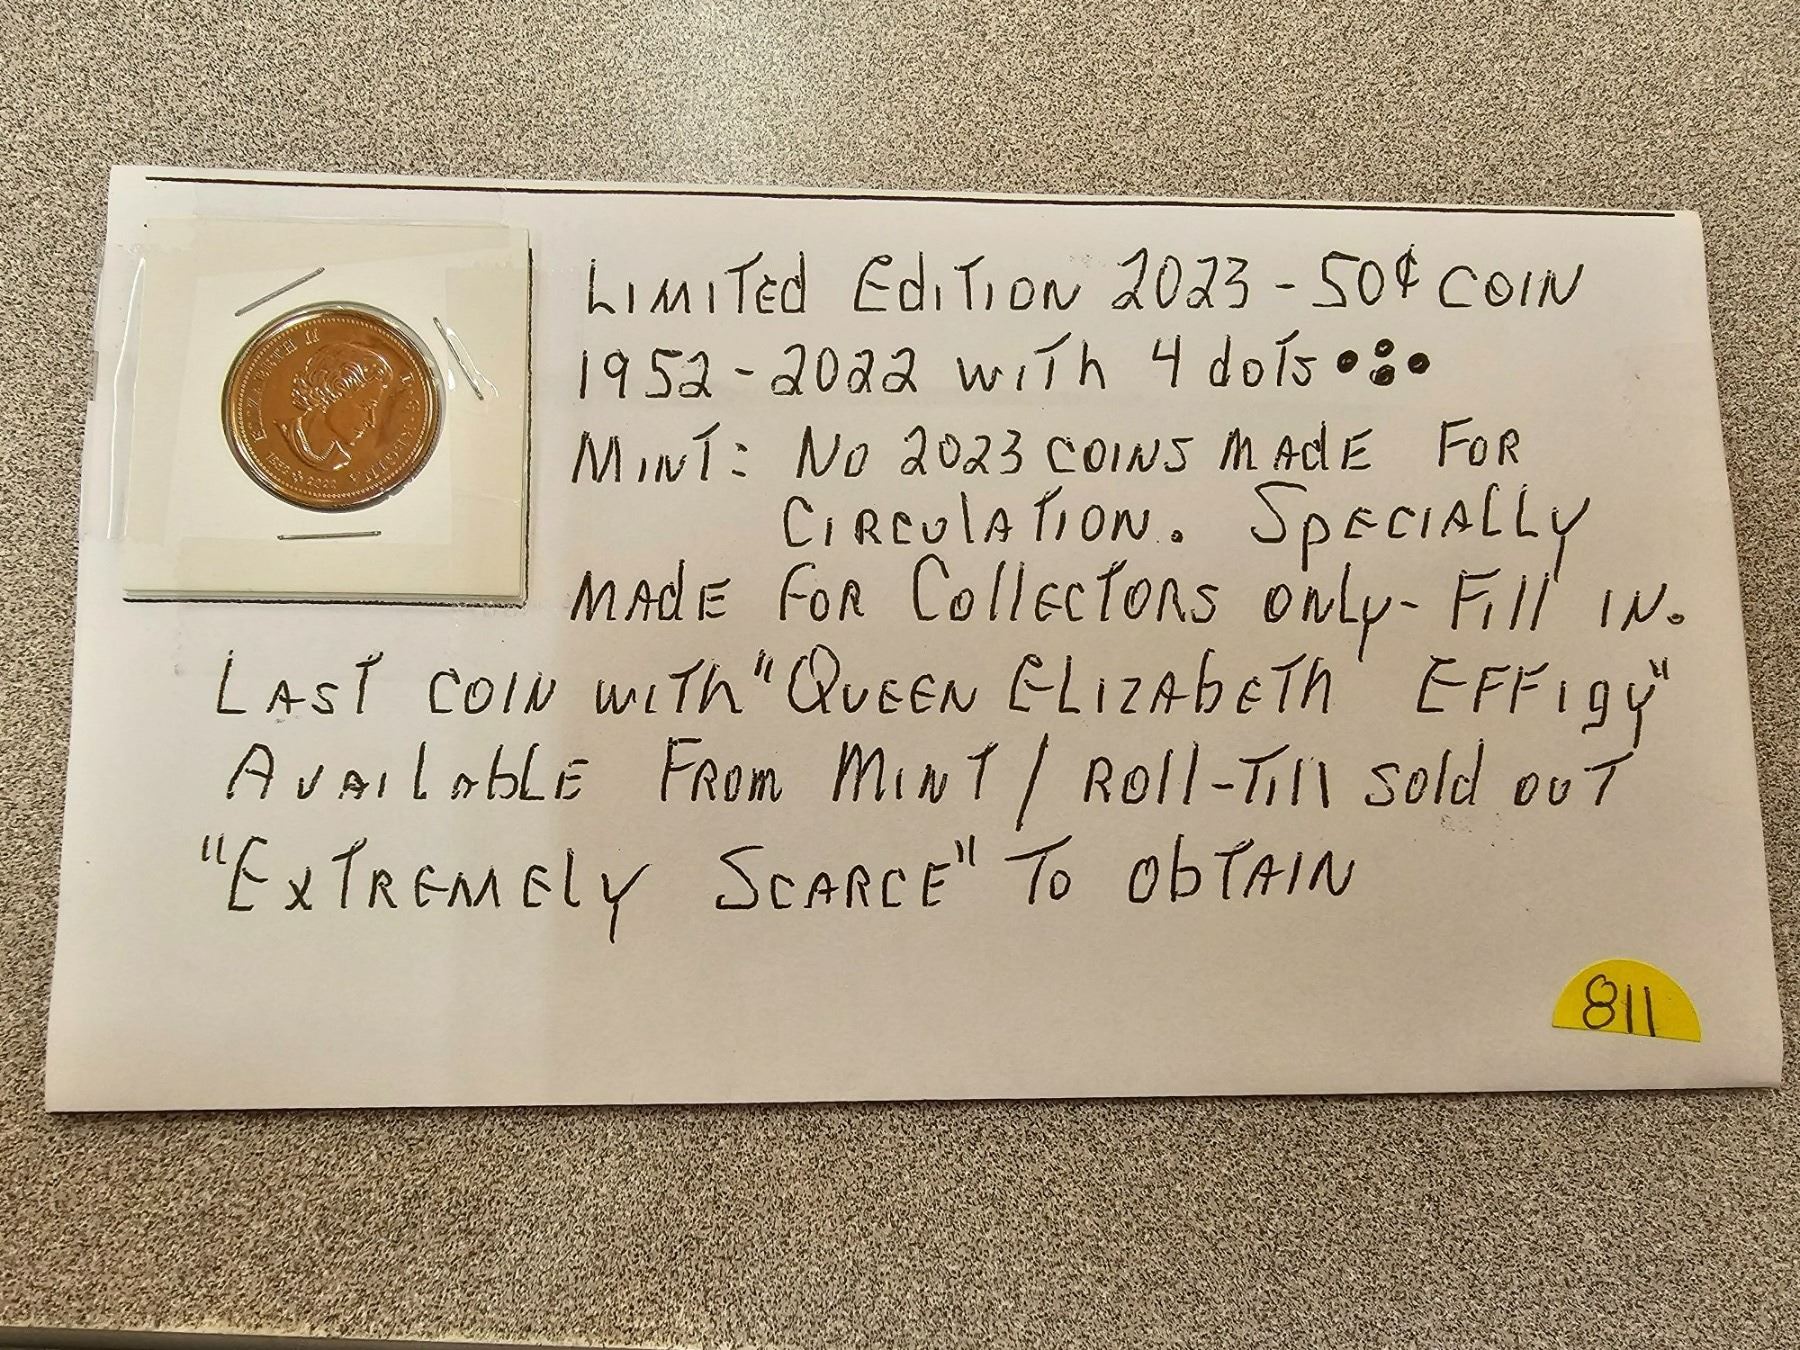 ELIZABETH II D·G·REGINA
1952 2022
LIMITED EDITION 2023 - 50¢ COIN
1952 - 2022 WITH 4 DOTS
MINT: NO 2023 COINS MADE FOR
CIRCULATION. SPECIALLY
MADE FOR COLLECTORS ONLY - FILL IN.
LAST COIN WITH "QUEEN ELIZABETH EFFIGY"
AVAILABLE FROM MINT / ROLL-TILL SOLD OUT
"EXTREMELY SCARCE" TO OBTAIN
811